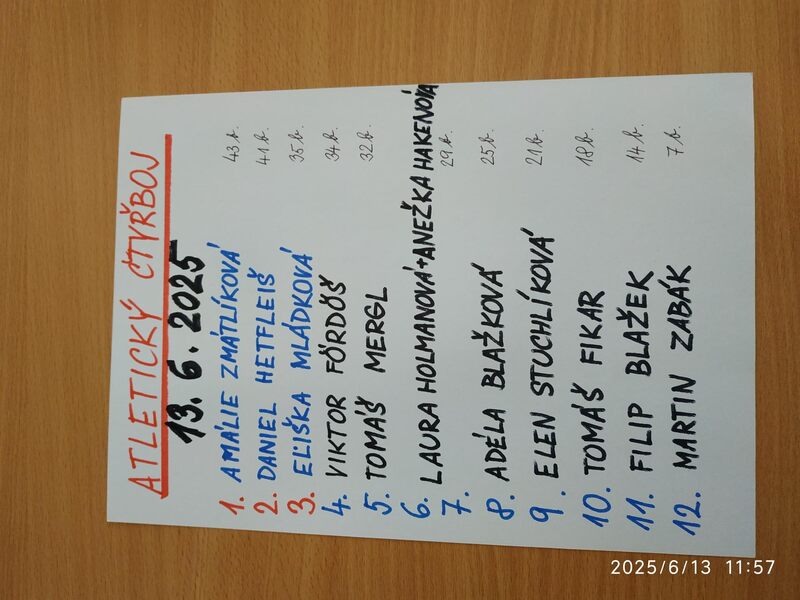 ATLETICKÝ ČTYŘBOJ
13. 6. 2025
1. AMÁLIE ZMÁTLÍKOVÁ 43 b.
2. DANIEL HETFLEIŠ 41 b.
3. ELIŠKA MLÁDKOVÁ 35 b.
4. VIKTOR FÖRDÖŠ 34 b.
5. TOMÁŠ MERGL 32 b.
6. LAURA HOLMANOVÁ + ANEŽKA HAKENOVÁ
7. 29 b.
8. ADÉLA BLAŽKOVÁ 25 b.
9. ELEN STUCHLÍKOVÁ 21 b.
10. TOMÁŠ FIKAR 18 b.
11. FILIP BLAŽEK 14 b.
12. MARTIN ZABÁK 7 b.
2025/6/13 11:57